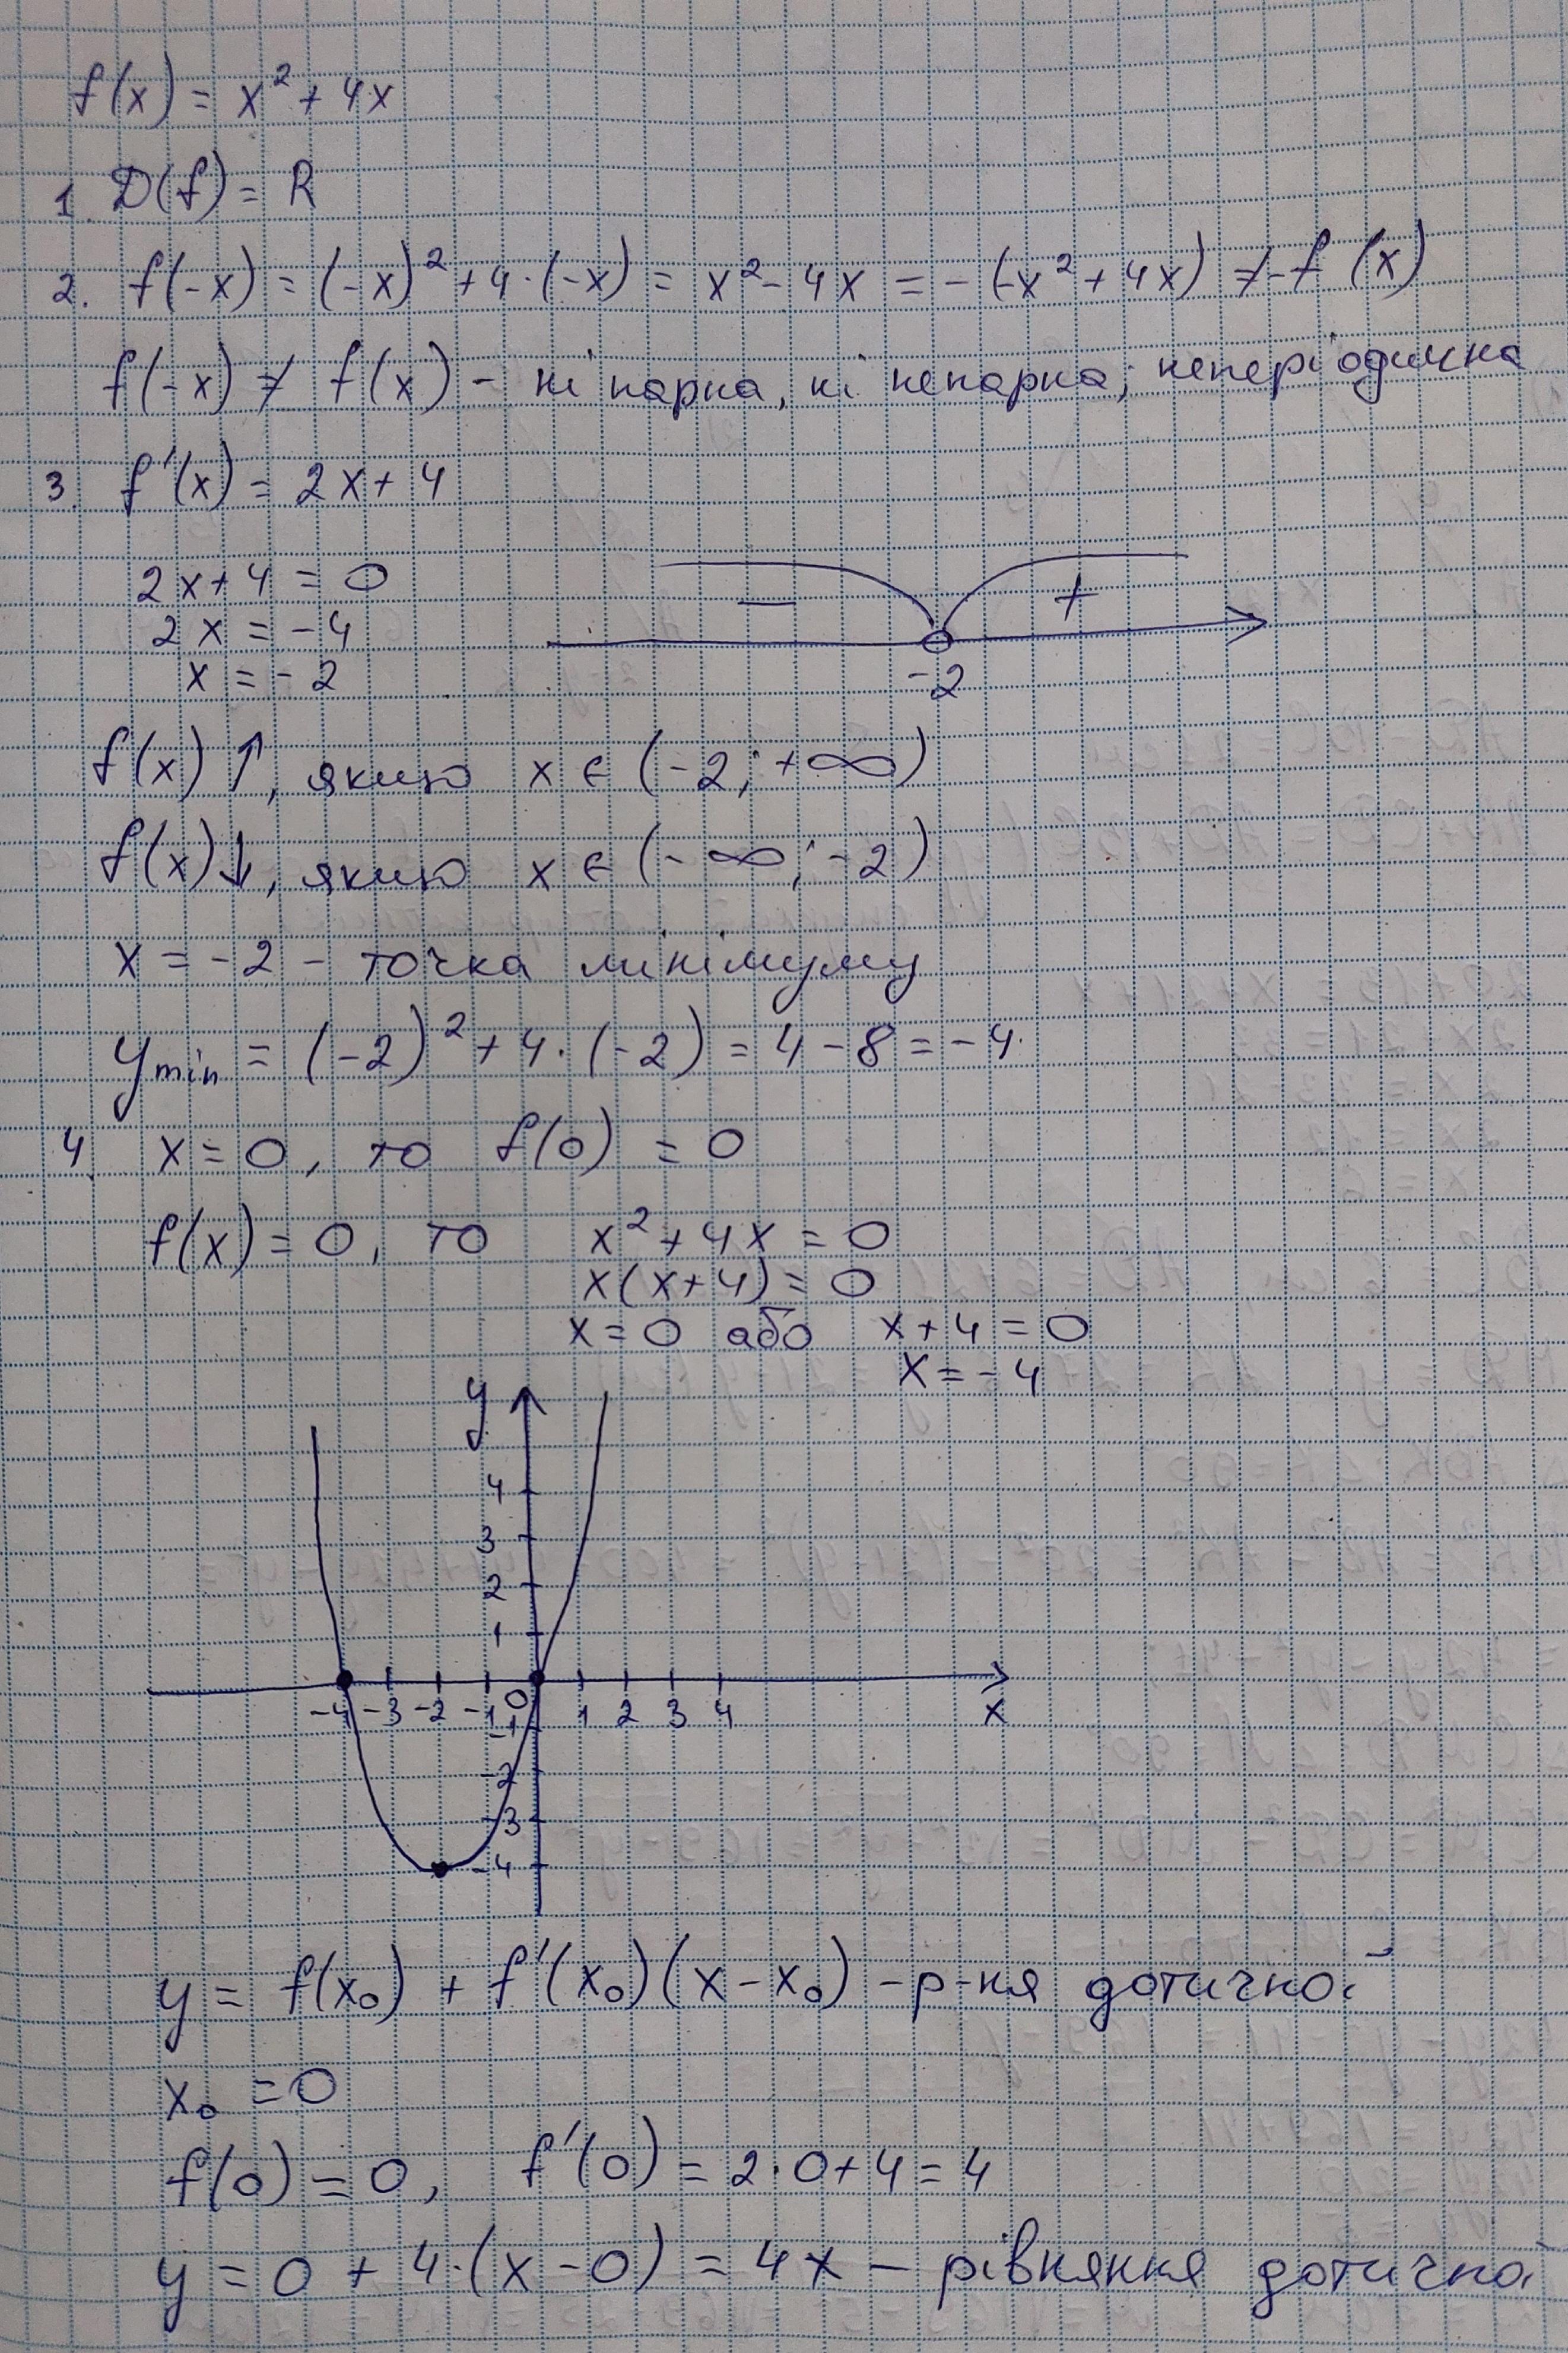 f(x) = x² + 4x
1. D(f) = R
2. f(-x) = (-x)² + 4·(-x) = x² - 4x = -(-x² + 4x) ≠ -f(x)
f(-x) ≠ f(x) - ні парна, ні непарна; неперіодична
3. f'(x) = 2x + 4
2x + 4 = 0
2x = -4
x = -2
− +
-2
f(x) ↑, якщо x ∈ (-2; +∞)
f(x) ↓, якщо x ∈ (-∞; -2)
x = -2 - точка мінімуму
y min = (-2)² + 4·(-2) = 4 - 8 = -4.
4. x = 0, то f(0) = 0
f(x) = 0, то x² + 4x = 0
x(x+4) = 0
x = 0 або x + 4 = 0
x = -4
y
4
3
2
1
-4 -3 -2 -1 0 1 2 3 4 x
-1
-2
-3
-4
y = f(x₀) + f'(x₀)(x - x₀) - р-ня дотичної
x₀ = 0
f(0) = 0, f'(0) = 2·0 + 4 = 4
y = 0 + 4·(x - 0) = 4x - рівняння дотичної